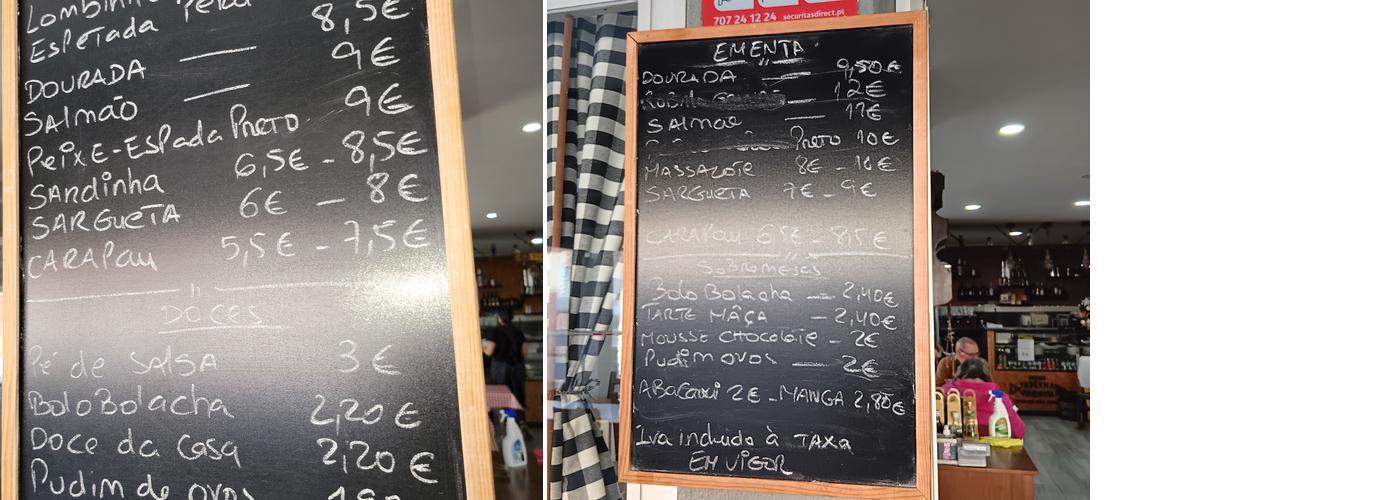 Lombinho Peru
Espetada 8,5€
DOURADA — 9€
SAlmão — 9€
PeixE-EsPada PreTo
SARdinha 6,5€ - 8,5€
SARGueTA 6€ — 8€
CARAPau 5,5€ - 7,5€
DOCES
Pé de SAlSA 3€
BoloBolacha 2,20€
Doce da casa 2,20€
Pudim de ovos
707 24 12 24 securitasdirect.pt
EMENTA
DOURADA " — 9,50€
— 12€
SAlmão — 11€
PreTo 10€
MASSAROTE 8€ - 10€
SARGUETA 7€ - 9€
CARAPau 6,5€ - 8,5€
SobRemesas
Bolo Bolacha — 2,40€
TARTE MÂÇA — 2,40€
MOUSSE CHOCOlaTE - 2€
Pudim ovos — 2€
ABacaxi 2€ - MANGA 2,80€
Iva incluido à TAXa
EM VIGOR